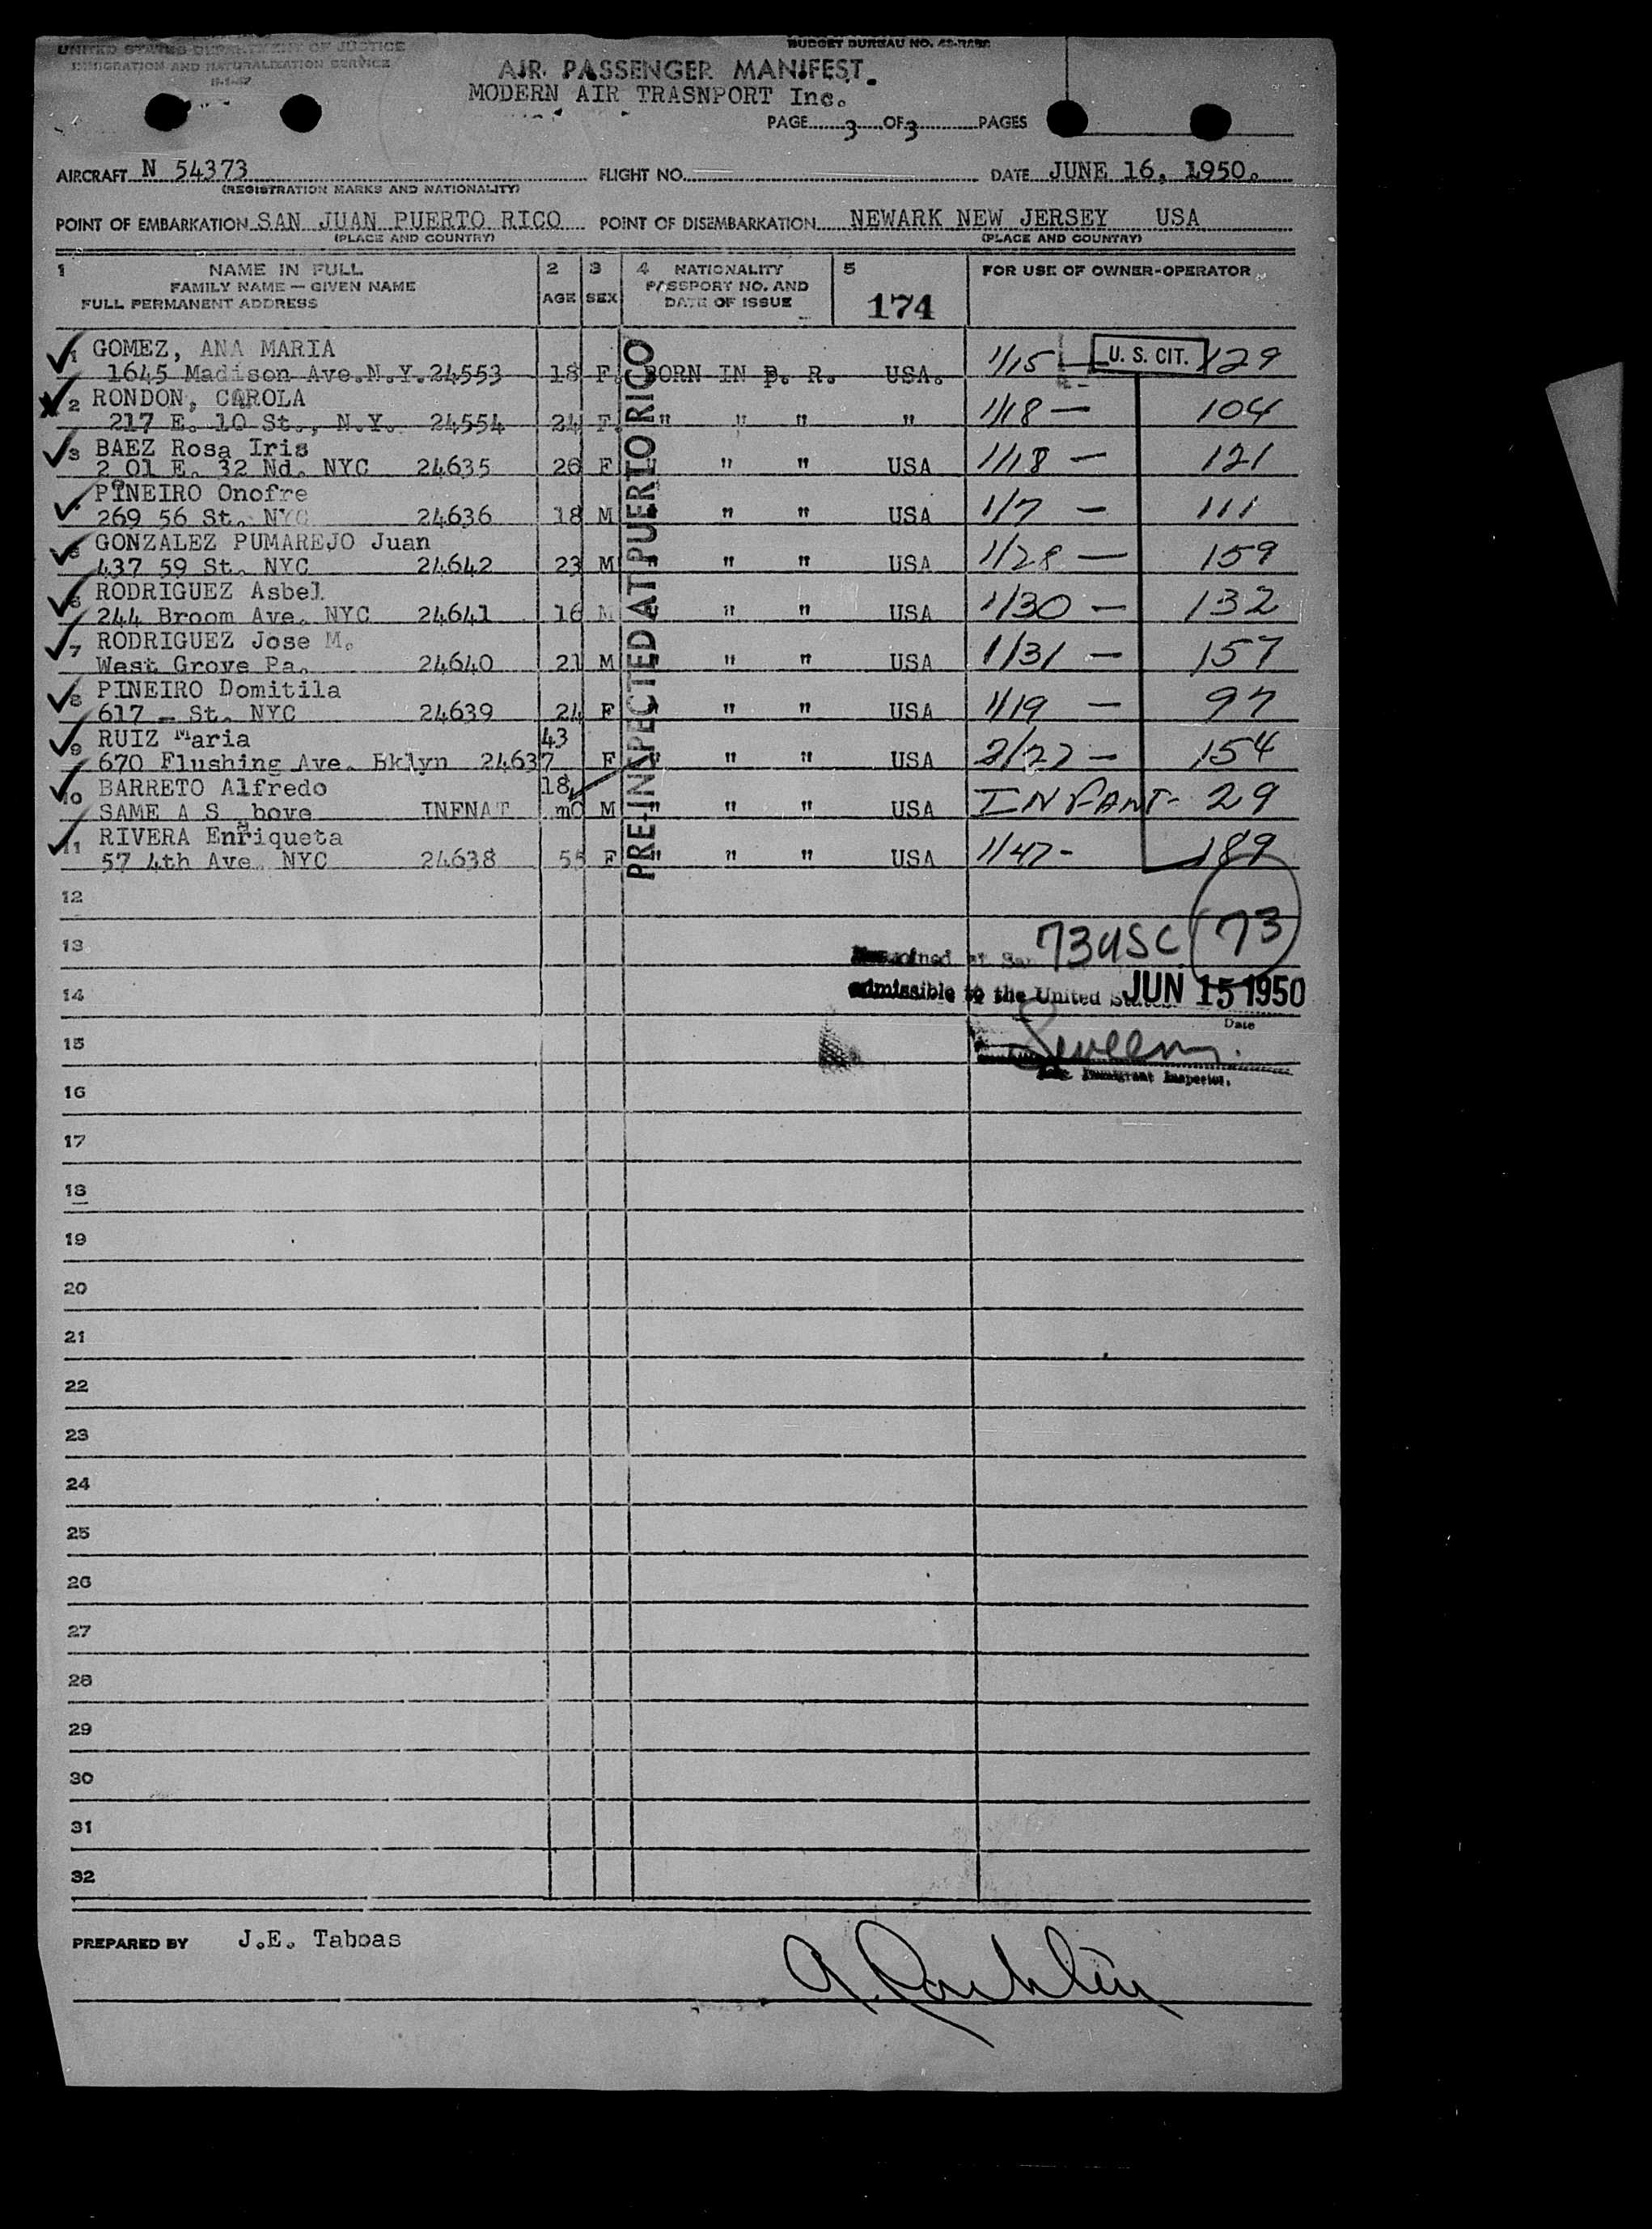 UNITED STATES DEPARTMENT OF JUSTICE
IMMIGRATION AND NATURALIZATION SERVICE
BUDGET BUREAU NO.
AIR PASSENGER MANIFEST
MODERN AIR TRASNPORT Inc.
PAGE 3 OF 3 PAGES
AIRCRAFT N 54373 FLIGHT NO. DATE JUNE 16, 1950.
(REGISTRATION MARKS AND NATIONALITY)
POINT OF EMBARKATION SAN JUAN PUERTO RICO POINT OF DISEMBARKATION NEWARK NEW JERSEY USA
(PLACE AND COUNTRY) (PLACE AND COUNTRY)
1 NAME IN FULL 2 3 4 NATIONALITY 5 FOR USE OF OWNER-OPERATOR
FAMILY NAME — GIVEN NAME PASSPORT NO. AND
FULL PERMANENT ADDRESS AGE SEX DATE OF ISSUE 174
PRE-INSPECTED AT PUERTO RICO
1 GOMEZ, ANA MARIA U. S. CIT.
1645 Madison Ave.N.Y.24553 18 F. BORN IN P. R. USA. 1/15 — 129
2 RONDON, CAROLA
217 E. 10 St., N.Y. 24554 24 F. " " " " 1/18 — 104
3 BAEZ Rosa Iris
2 01 E. 32 Nd. NYC 24635 26 F " " USA 1/18 — 121
PINEIRO Onofre
269 56 St. NYC 24636 18 M " " USA 1/7 — 111
5 GONZALEZ PUMAREJO Juan
437 59 St. NYC 24642 23 M " " " USA 1/28 — 159
6 RODRIGUEZ Asbel
244 Broom Ave. NYC 24641 16 M " " " USA 1/30 — 132
7 RODRIGUEZ Jose M.
West Grove Pa. 24640 21 M " " " USA 1/31 — 157
8 PINEIRO Domitila
617 - St. NYC 24639 24 F " " " USA 1/19 — 97
9 RUIZ Maria 43
670 Flushing Ave. Bklyn 24637 F " " " USA 2/22 — 154
10 BARRETO Alfredo 18
SAME A S bove INFNAT mO M " " " USA INFANT - 29
11 RIVERA Enriqueta
57 4th Ave NYC 24638 55 F " " " USA 1/47 - 189
12
13 73 USC 73
14 admissible to the United States JUN 15 1950
Date
15
Immigrant Inspector.
16
17
18
19
20
21
22
23
24
25
26
27
28
29
30
31
32
PREPARED BY J.E. Taboas